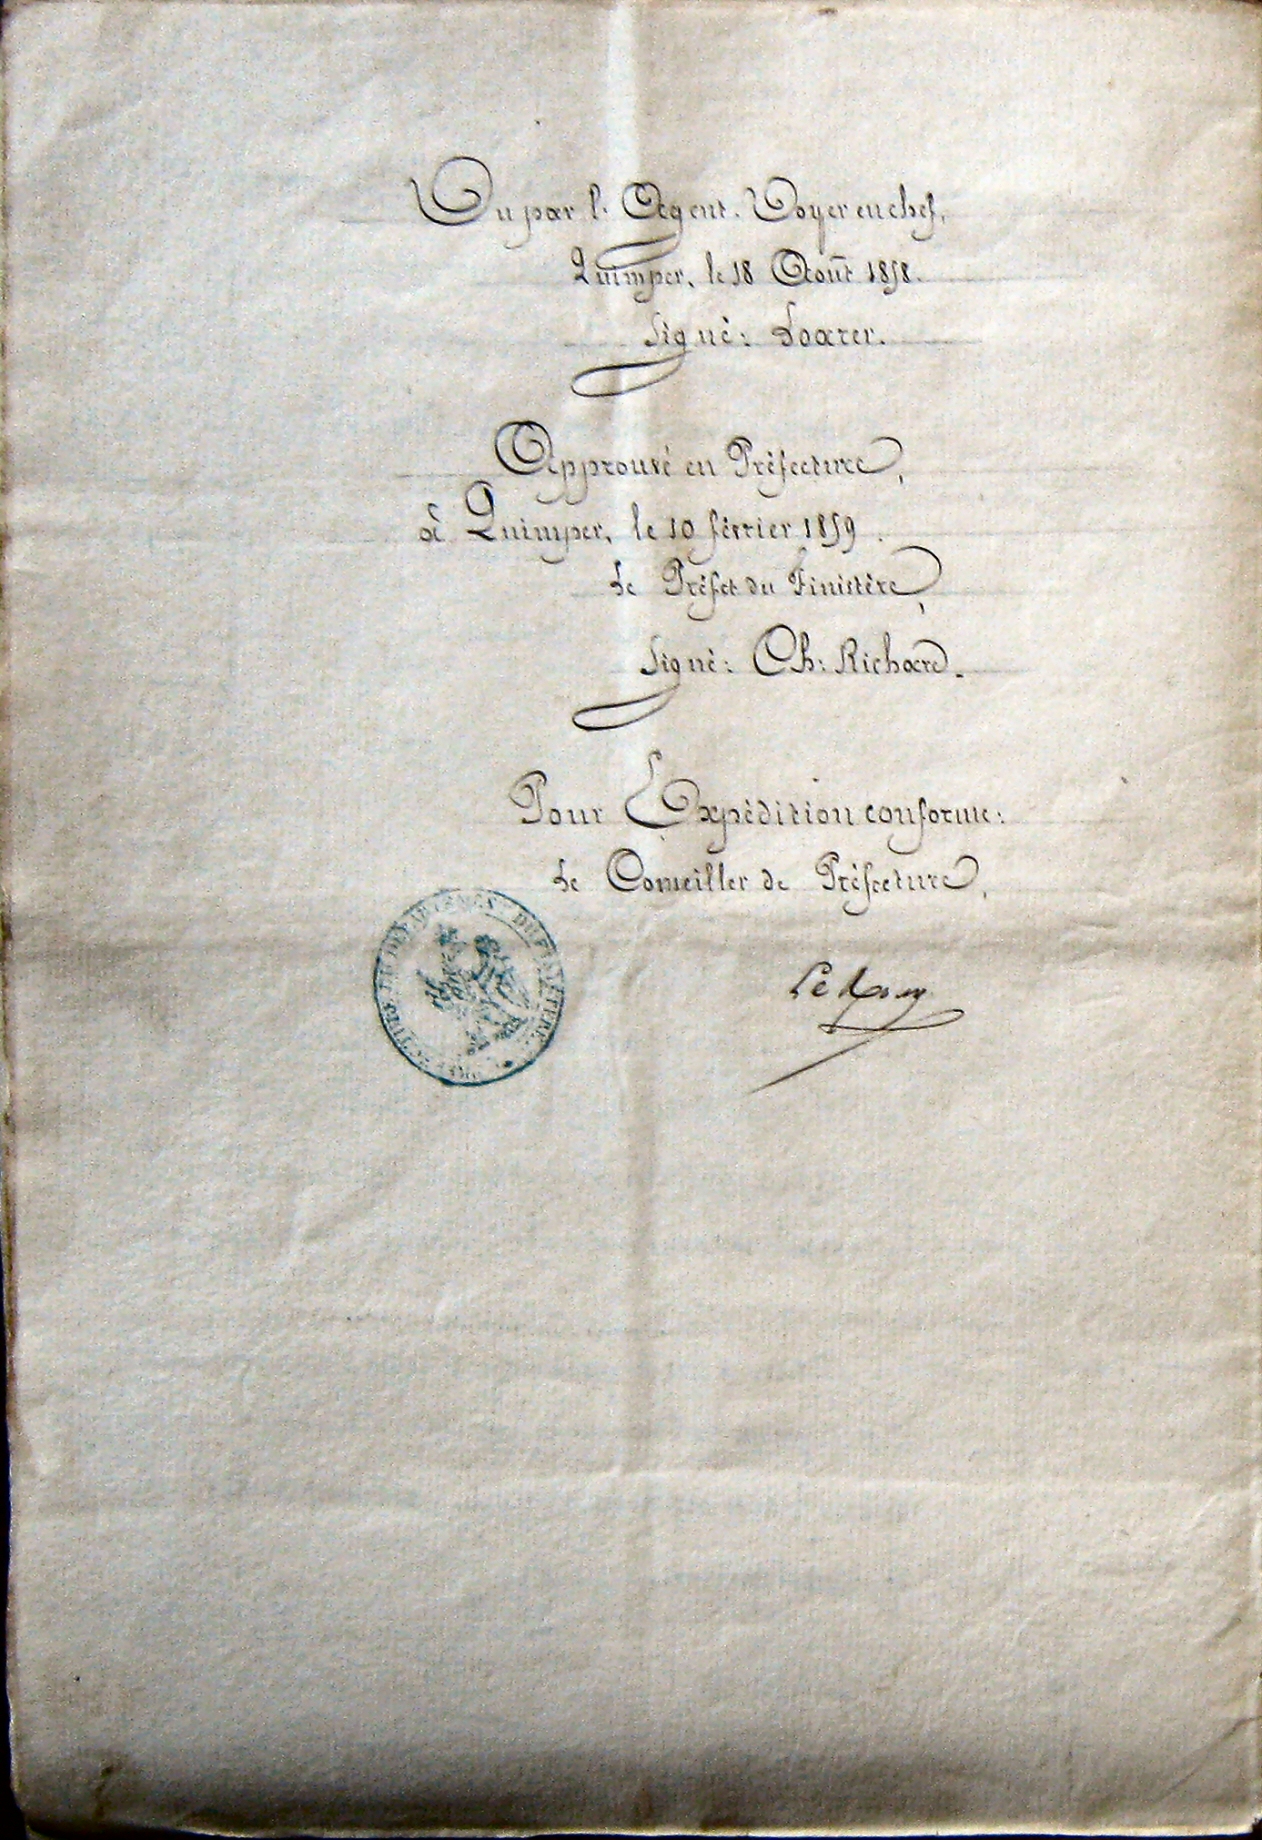 Vu par l'Agent-Voyer en chef,
Quimper, le 18 Août 1858.
Signé: Loarer.
Approuvé en Préfecture,
à Quimper, le 10 février 1859.
Le Préfet du Finistère,
Signé: Ch: Richard.
Pour Expédition conforme:
Le Conseiller de Préfecture,
DU FINISTÈRE